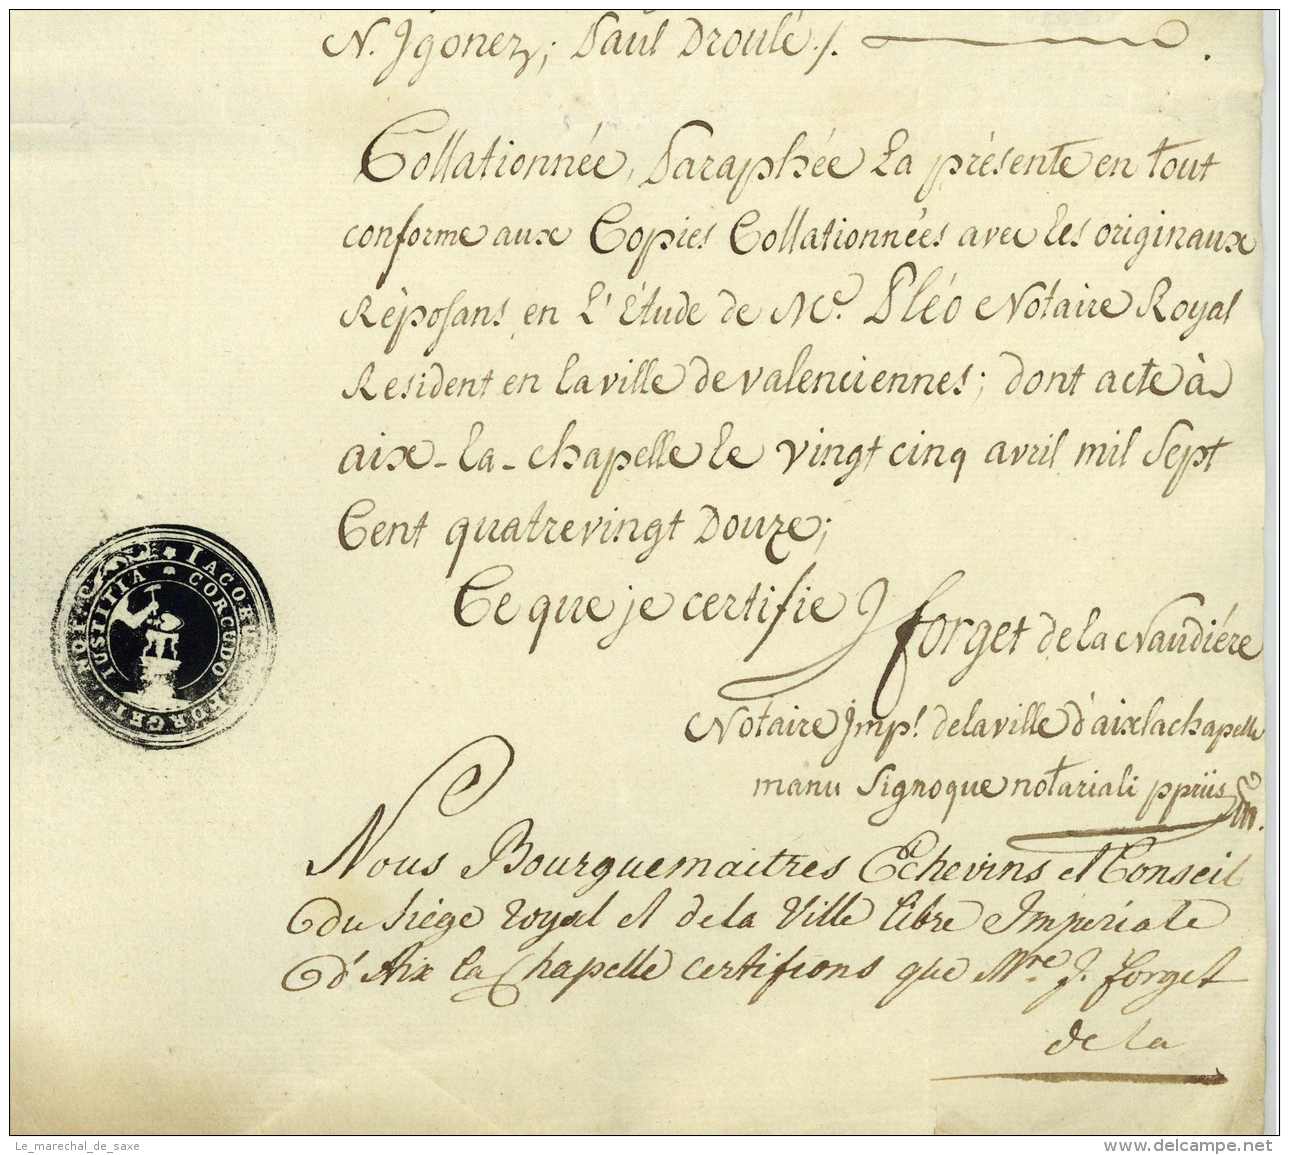 N. Jgonez; Paul Droulé ./. .
Collationnée, Paraphée la présente en tout
conforme aux Copies Collationnées avec les originaux
Réposans en l'Etude de Me. Pléo Notaire Royal
Resident en la ville de valenciennes; dont acte à
aix-la-chapelle le vingt cinq avril mil sept
Cent quatrevingt Douze;
Ce que je certifie J forget de la Naudiére
Notaire Jmpl. de la ville d'aix la chapelle
manu signoque notariali ppriis
Nous Bourguemaitres Echevins et Conseil
du siége royal et de la Ville libre Imperiale
d'Aix la Chapelle certifions que Mre. J. forget
de la
IACOBUS FORGET NOT.
JUSTITIA CORCUDO
Le_marechal_de_saxe
www.delcampe.net